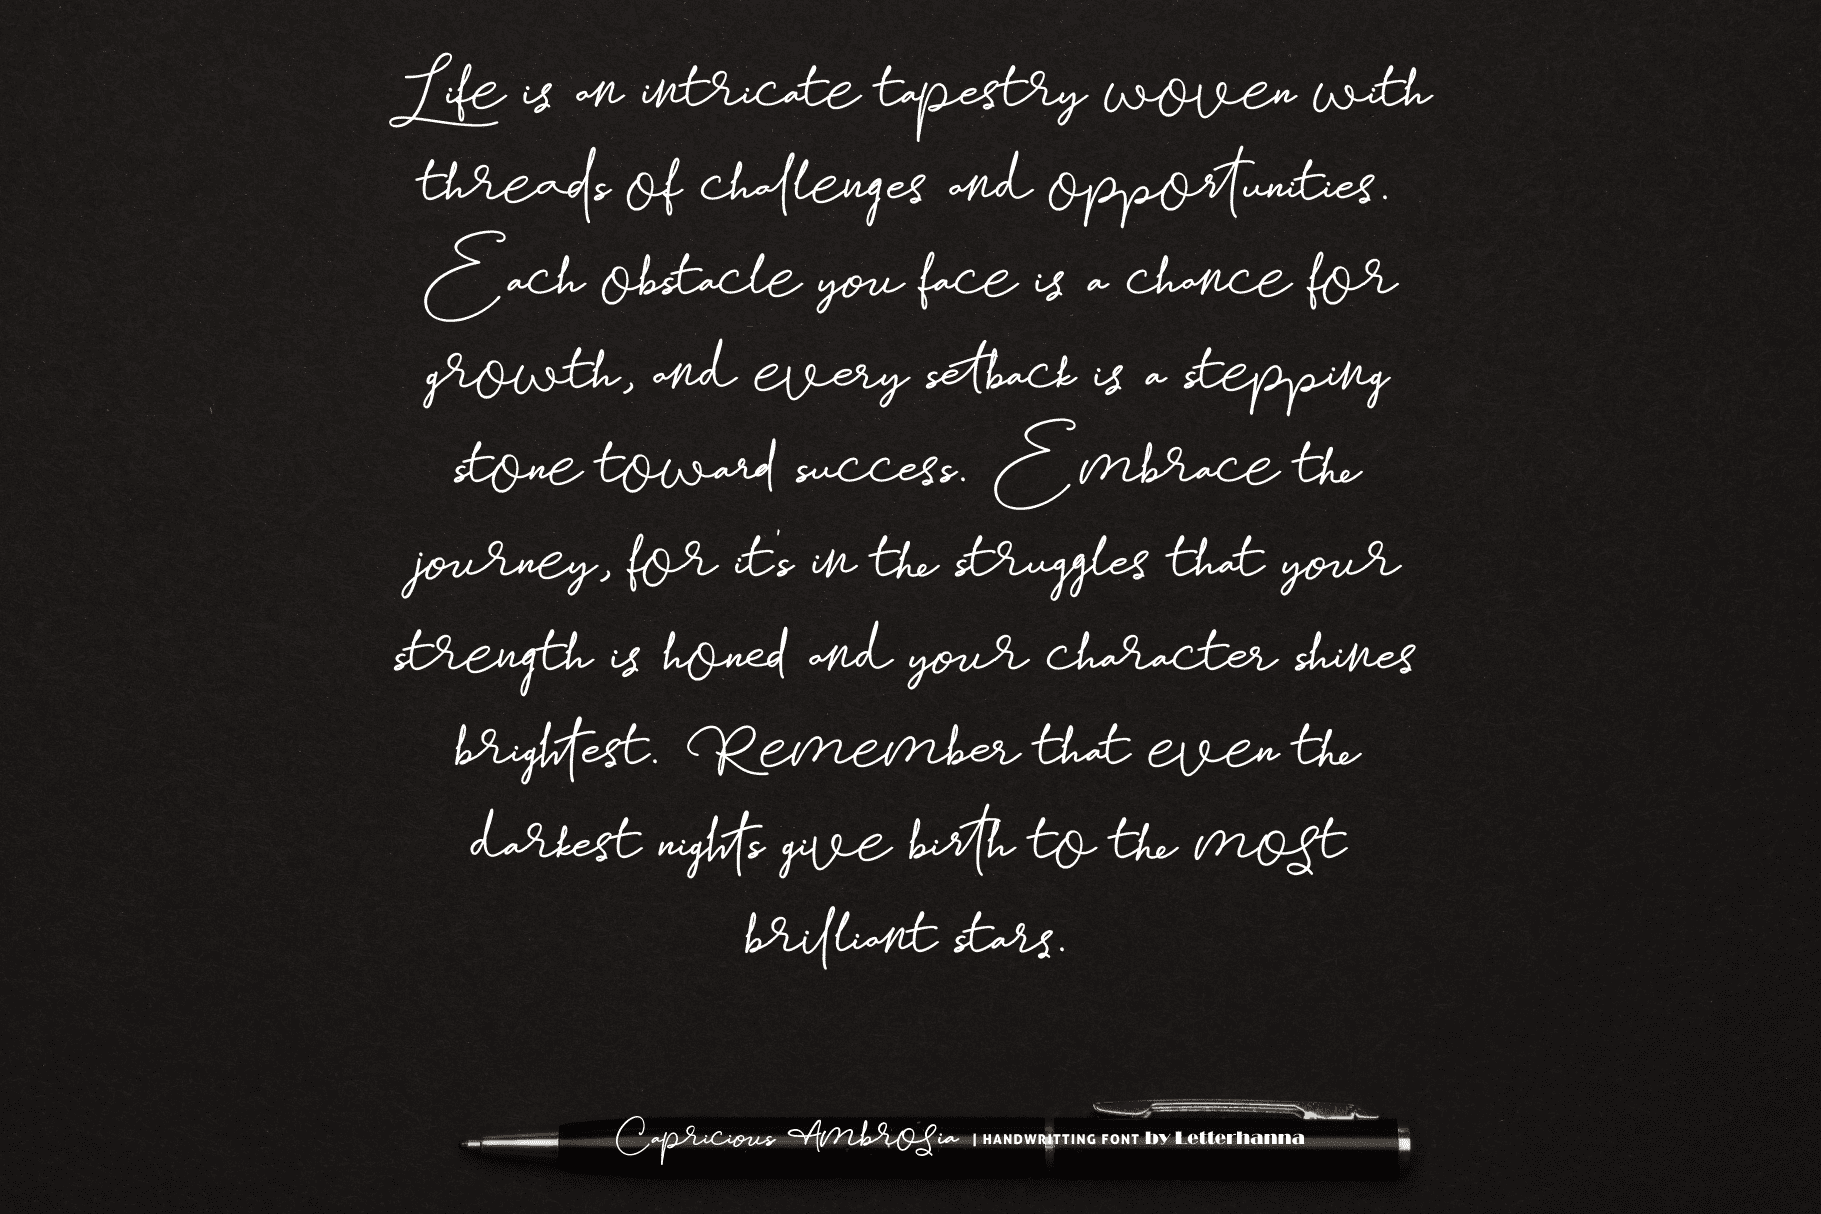 Life is an intricate tapestry woven with
threads of challenges and opportunities.
Each obstacle you face is a chance for
growth, and every setback is a stepping
stone toward success. Embrace the
journey, for it's in the struggles that your
strength is honed and your character shines
brightest. Remember that even the
darkest nights give birth to the most
brilliant stars.
Capricious Ambrosia | HANDWRITTING FONT by Letterhanna